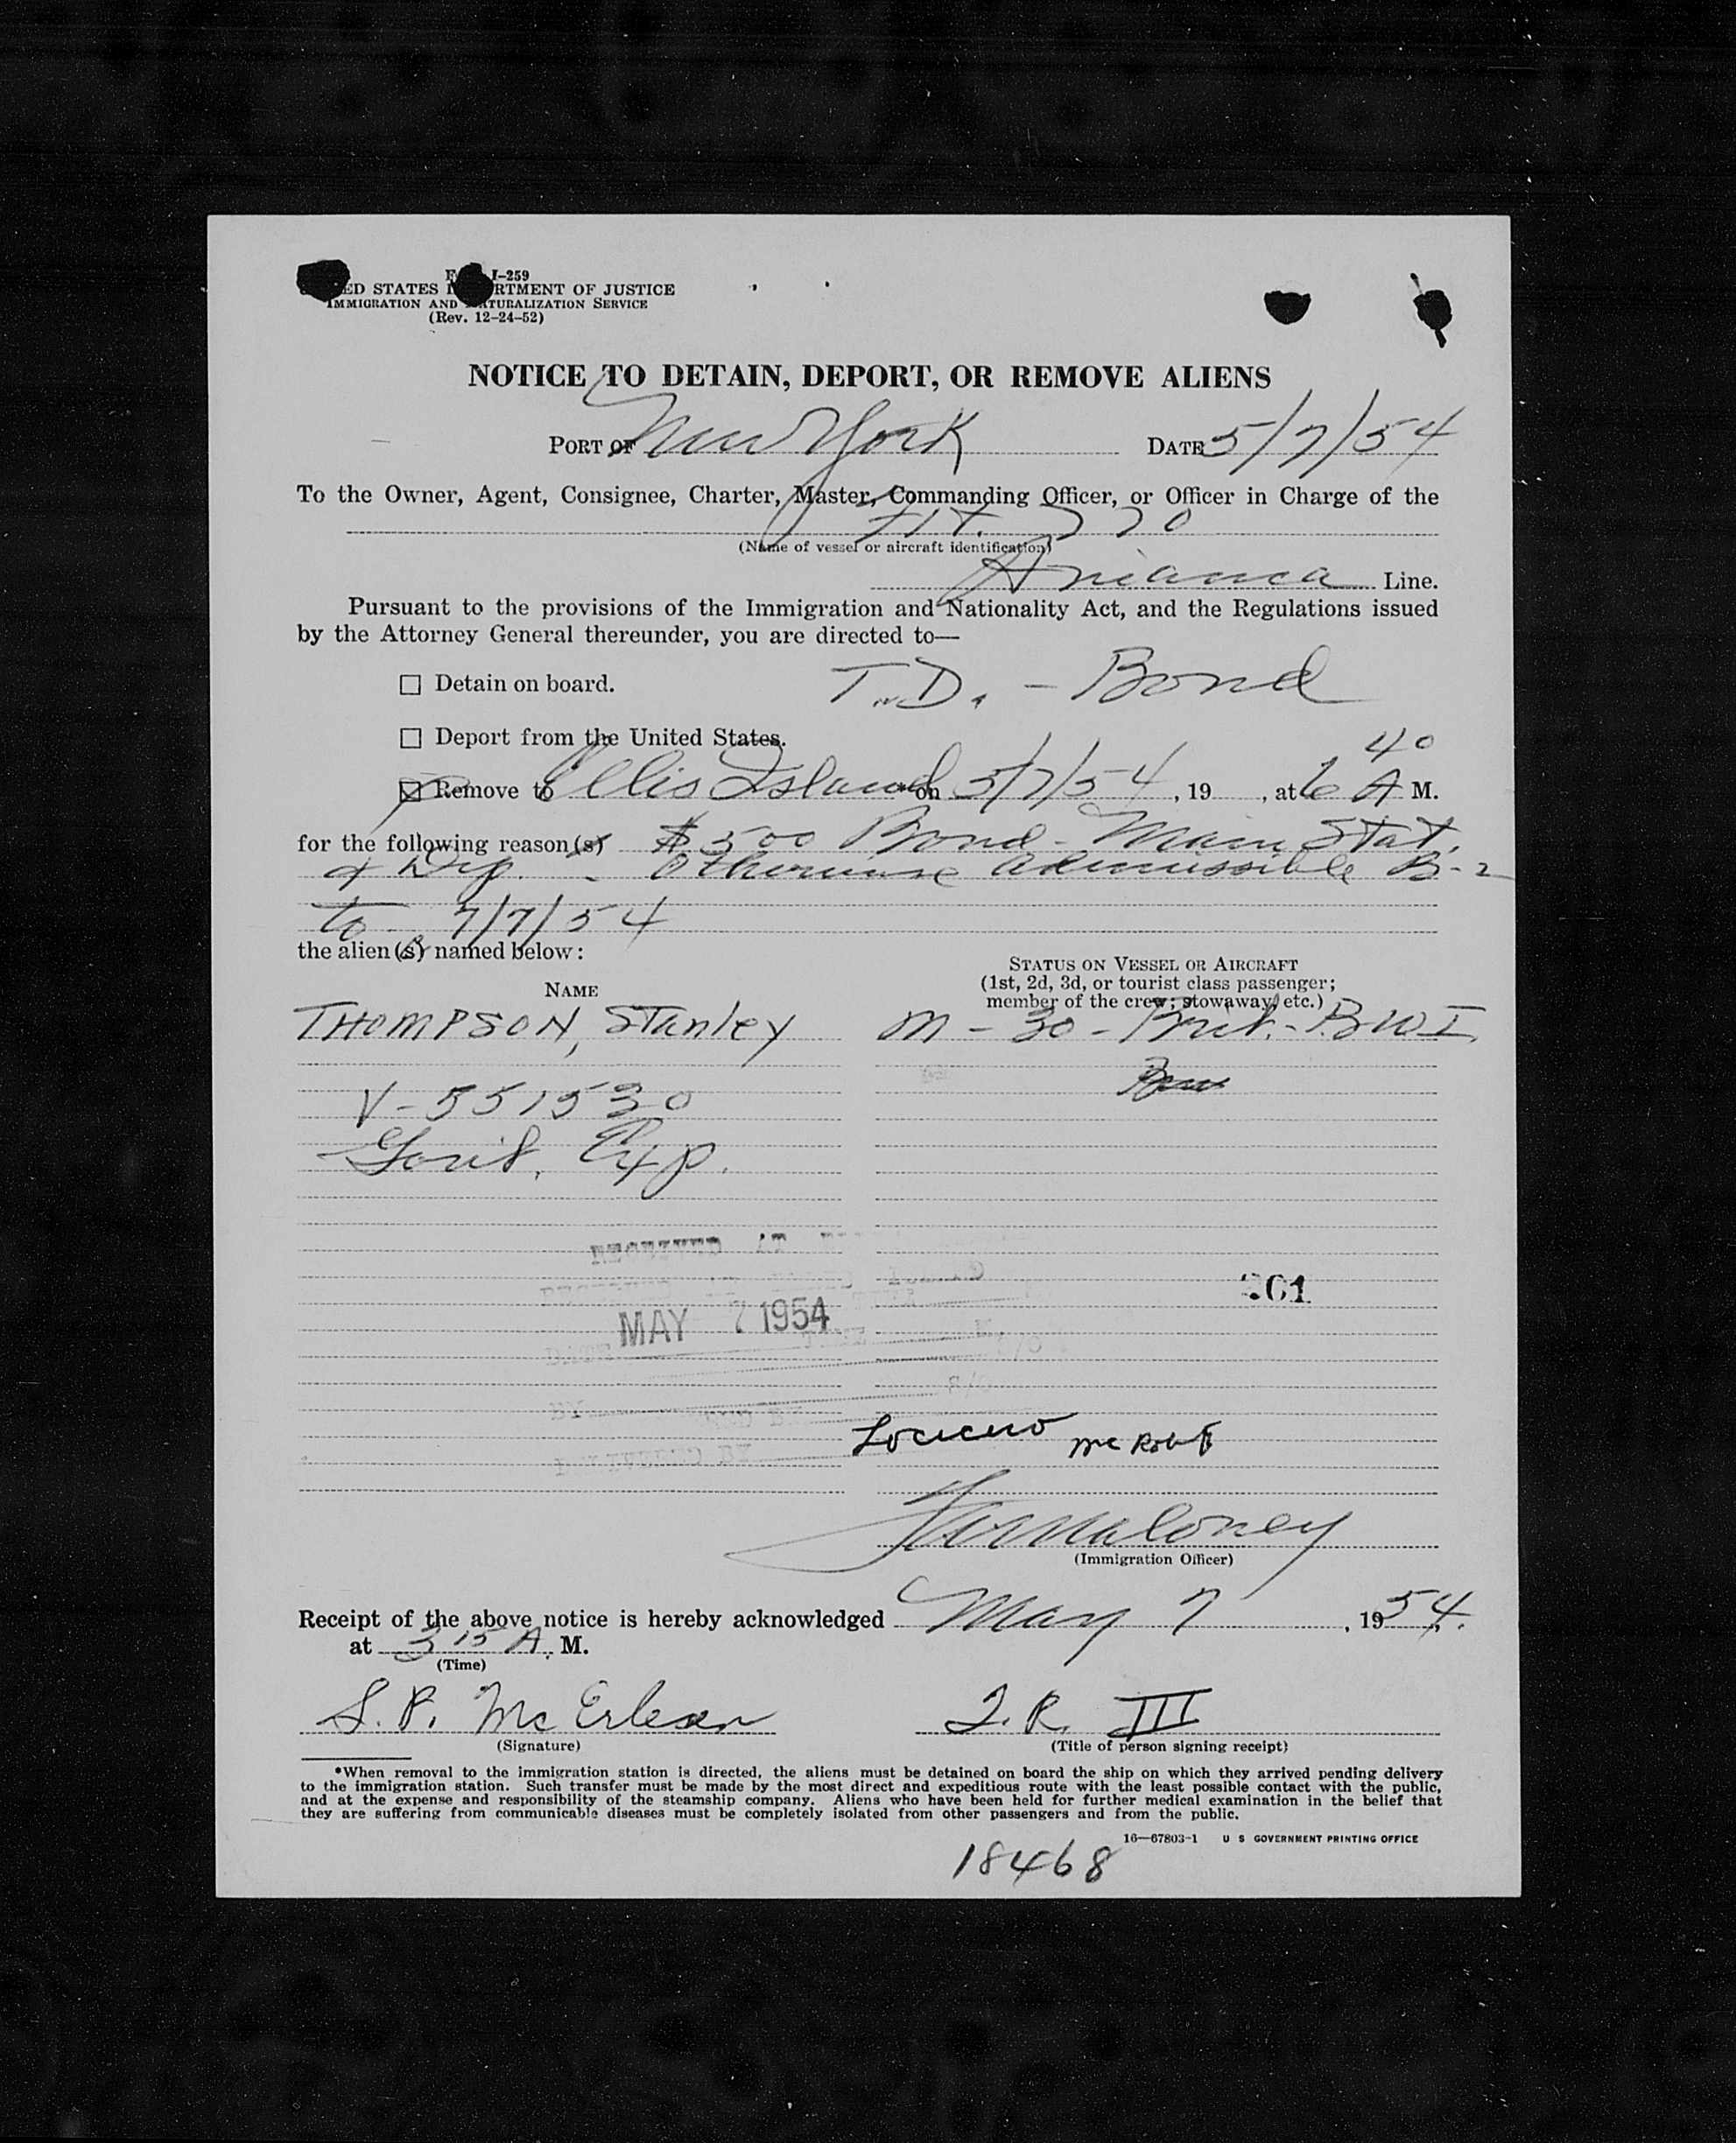 I-259
ED STATES RTMENT OF JUSTICE
IMMIGRATION AND NATURALIZATION SERVICE
(Rev. 12-24-52)
NOTICE TO DETAIN, DEPORT, OR REMOVE ALIENS
PORT OF New York DATE 5/7/54
To the Owner, Agent, Consignee, Charter, Master, Commanding Officer, or Officer in Charge of the
Flt. 770
(Name of vessel or aircraft identification)
Line.
Pursuant to the provisions of the Immigration and Nationality Act, and the Regulations issued
by the Attorney General thereunder, you are directed to—
Detain on board. T.D. - Bond
Deport from the United States.
Remove to Ellis Island *on 5/7/54, 19 , at 6 40 A M.
for the following reason(s) $500 Bond - Main Stat.
& Dep. - Otherwise admissible B-2
to 7/7/54
the alien(s) named below:
NAME
STATUS ON VESSEL OR AIRCRAFT
(1st, 2d, 3d, or tourist class passenger;
member of the crew; stowaway, etc.)
THOMPSON, Stanley M - 30 - Brit. - BWI
V-551530
Exp.
RECEIVED AT
MAY 7 1954
Locicero
Maloney
(Immigration Officer)
Receipt of the above notice is hereby acknowledged May 7, 1954.
at 3 15 A. M.
(Time)
S.P. McErlean
(Signature)
T.R. III
(Title of person signing receipt)
*When removal to the immigration station is directed, the aliens must be detained on board the ship on which they arrived pending delivery
to the immigration station. Such transfer must be made by the most direct and expeditious route with the least possible contact with the public,
and at the expense and responsibility of the steamship company. Aliens who have been held for further medical examination in the belief that
they are suffering from communicable diseases must be completely isolated from other passengers and from the public.
16—67803-1 U S GOVERNMENT PRINTING OFFICE
18468